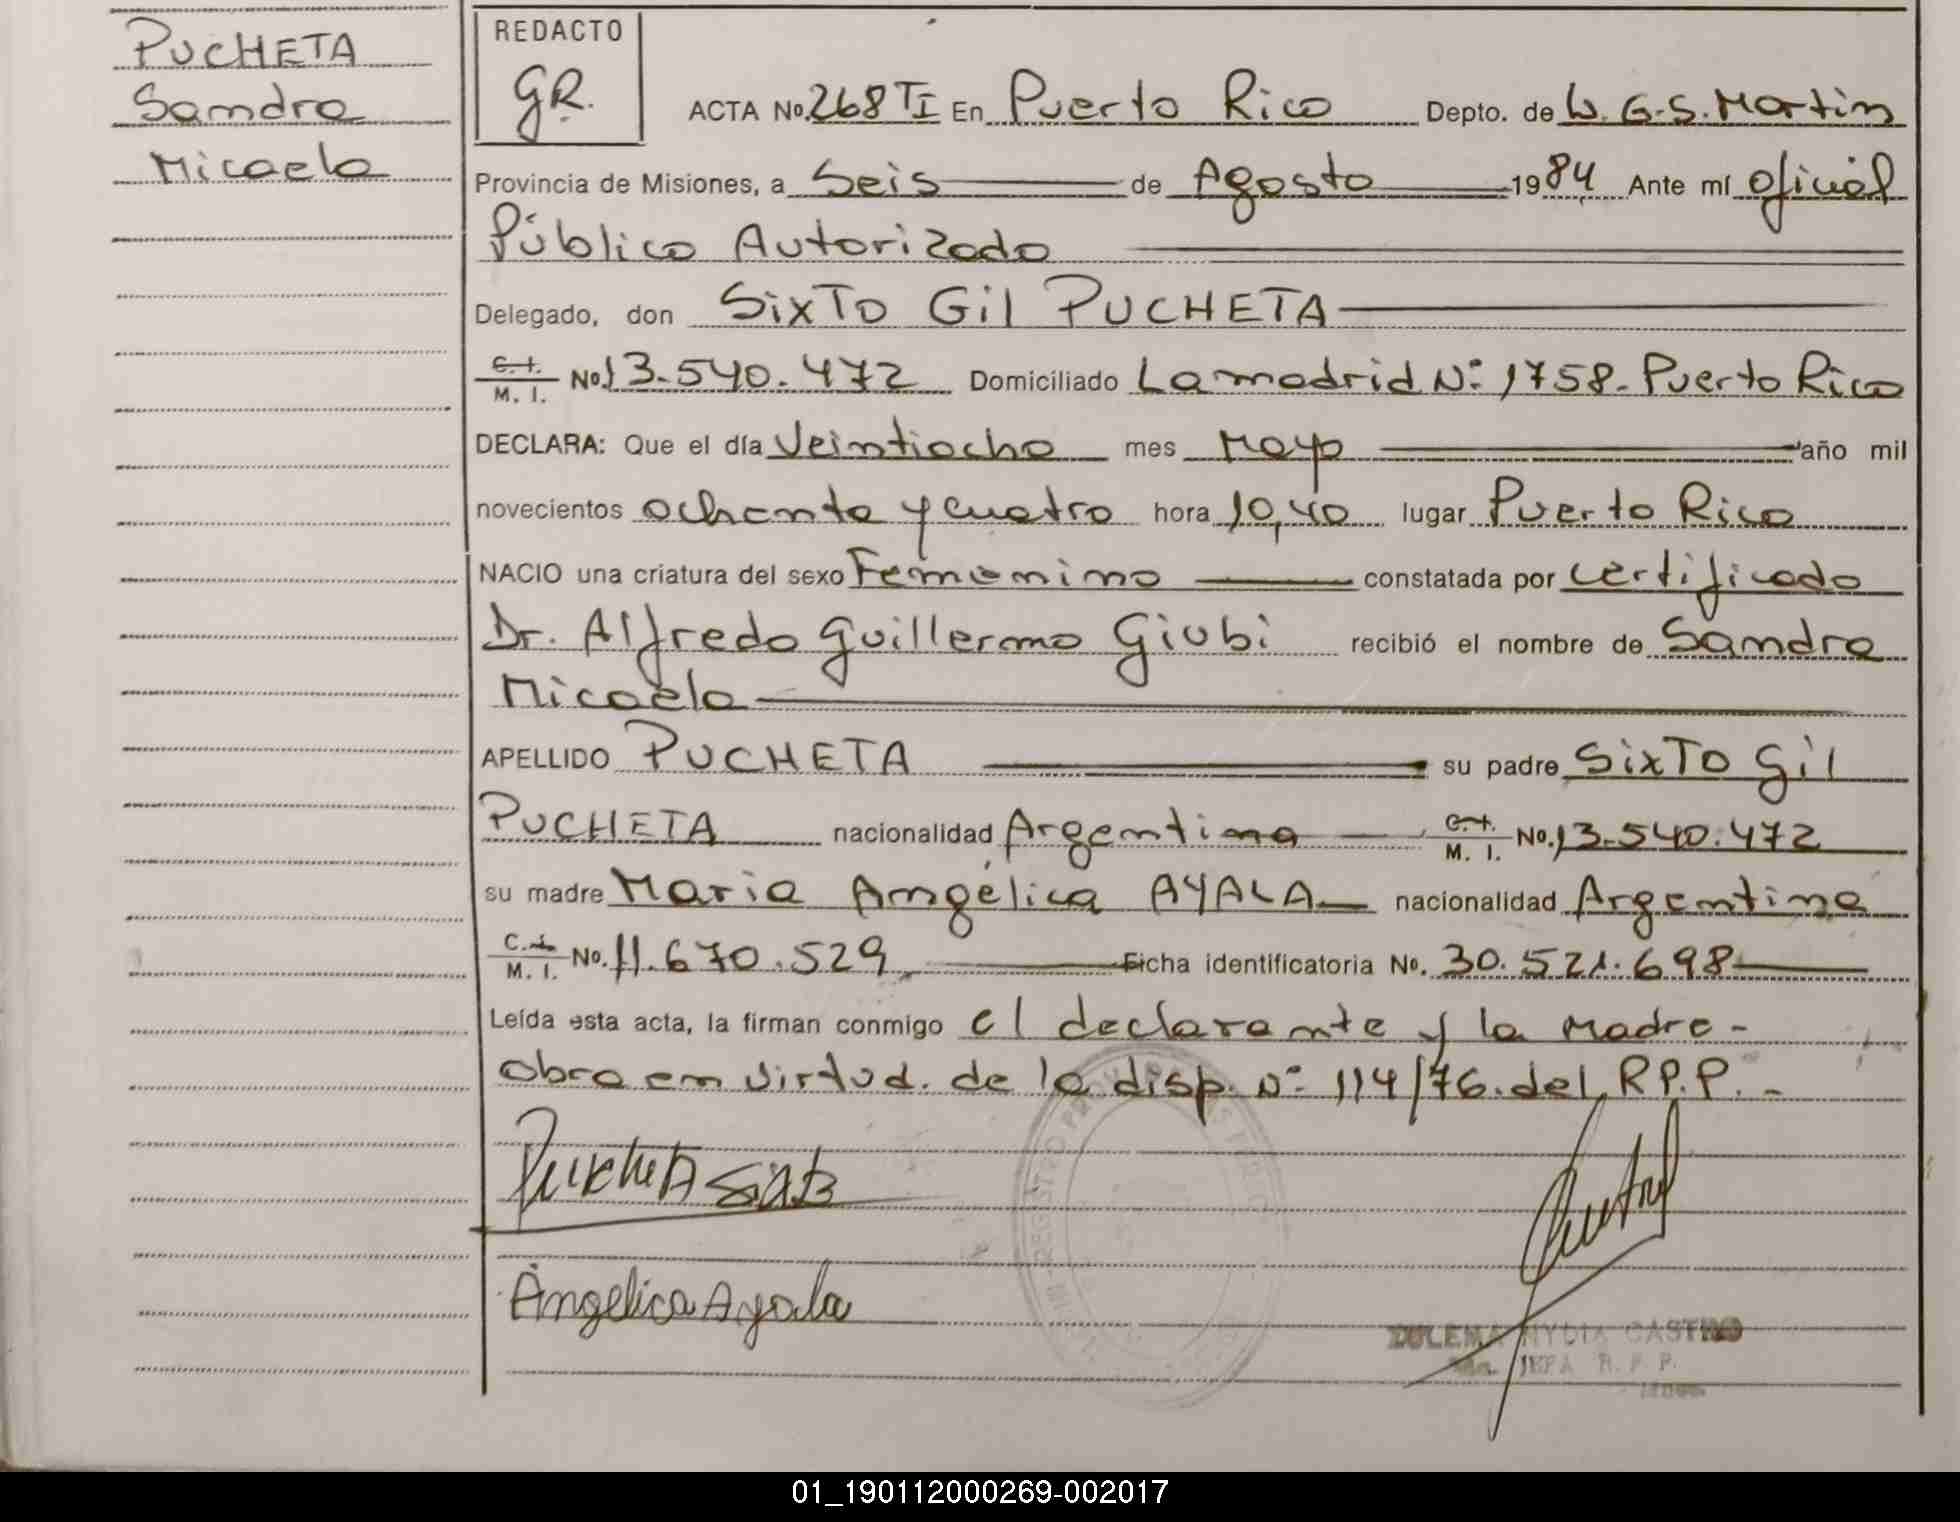 PUCHETA
Sandra
Micaela
REDACTO
GR.
ACTA No. 268 TI En Puerto Rico Depto. de L. G. S. Martin
Provincia de Misiones, a Seis de Agosto 1984 Ante mí oficial
Público Autorizado
Delegado, don SixTo Gil PUCHETA
C. I. / M. I. No. 13.540.472 Domiciliado Lamadrid Nº 1758. Puerto Rico
DECLARA: Que el día Veintiocho mes Mayo año mil
novecientos ochenta y cuatro hora 10,40 lugar Puerto Rico
NACIO una criatura del sexo Femenino constatada por certificado
Dr. Alfredo Guillermo Giubi recibió el nombre de Sandra
Micaela
APELLIDO PUCHETA su padre SixTo Gil
PUCHETA nacionalidad Argentina C. I. / M. I. No. 13.540.472
su madre Maria Angélica AYALA nacionalidad Argentina
C. I. / M. I. No. 11.670.529 Ficha identificatoria No. 30.521.698
Leída esta acta, la firman conmigo el declarante y la Madre-
obra en virtud. de la disp. Nº 114/76. del R.P.P. -
PucheTA Sixto
Angelica Ayala
NYDIA CASTRO
JEFA R. P. P.
01_190112000269-002017